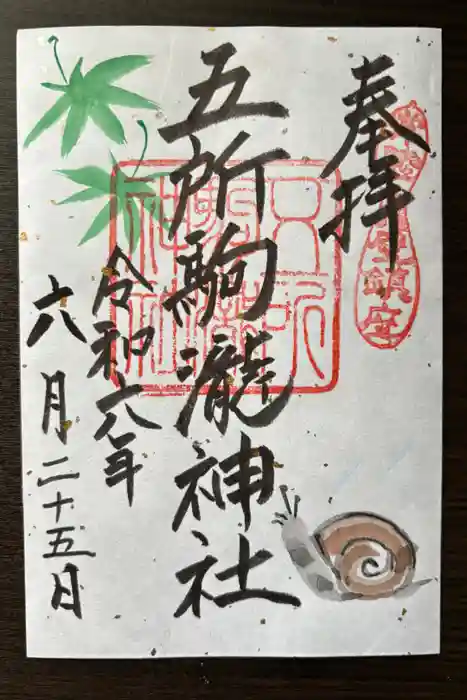 奉拝
五所駒瀧神社
令和六年
六月二十五日